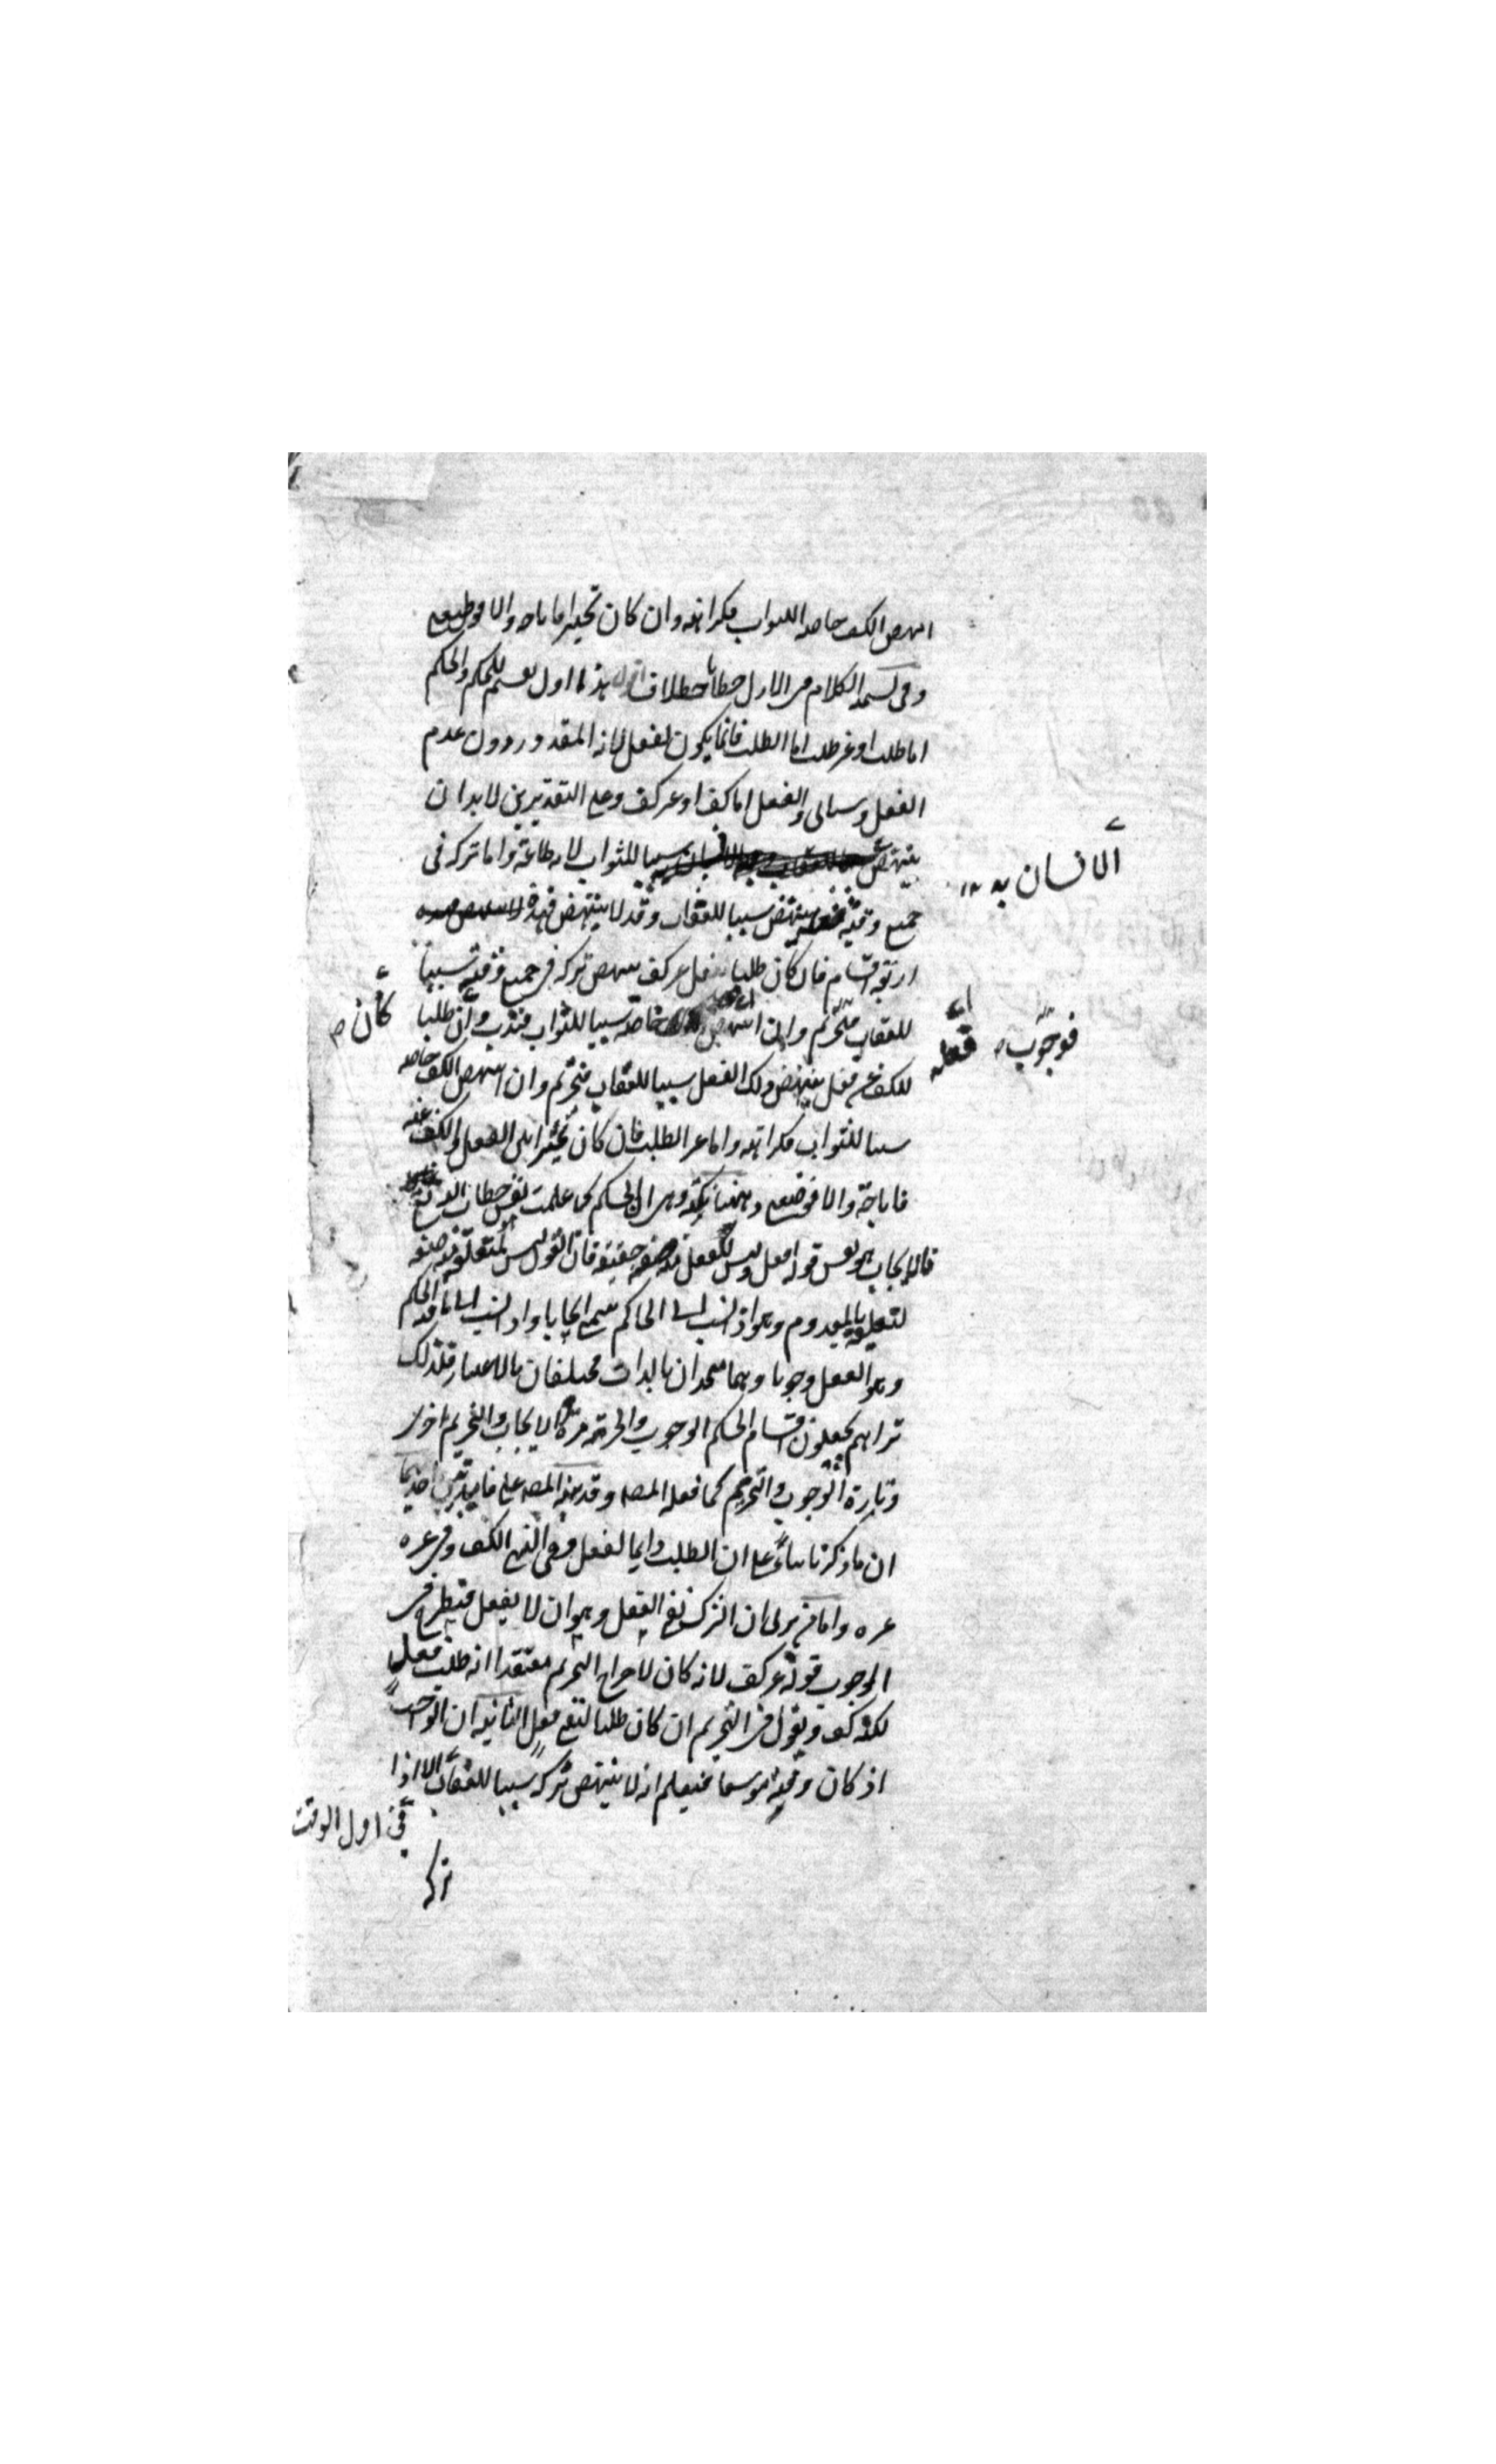 انتهض الكف خاصة للثواب فكراهة وان كان تخييرا فاباحة والا فوضعى
وفى تسمية الكلام فى الازل خطابا خلاف اقول هذا اول تقسيم للحكم والحكم
اما طلب او غير طلب اما الطلب فانما يكون لفعل لانه المقدور دون عدم
الفعل وسياتى والفعل اما كف او غير كف وعلى التقديرين لا بد ان
ينتهض الاتيان به سببا للثواب لانه طاعة واما تركه فى
جميع وقته فقد ينتهض سببا للعقاب وقد لا ينتهض فهذه
اربعة اقسام فان كان طلبا لفعل غير كف ينتهض تركه فى جميع وقته سببا
للعقاب فوجوب وان انتهض فعله خاصة سببا للثواب فندب وان كان طلبا
للكف عن فعل ينتهض ذلك الفعل سببا للعقاب فتحريم وان انتهض الكف خاصة
سببا للثواب فكراهة واما غير الطلب فان كان تخييرا بين الفعل والكف عنه
فاباحة والا فوضعى وههنا نكتة وهى ان الحكم كما علمت نفس خطاب الله تعالى
فالايجاب هو نفس قوله افعل وليس للفعل منه صفة حقيقة فان القول ليس لمتعلقه منه صفة
لتعلقه بالمعدوم وهو اذا نسب الى الحاكم سمى ايجابا واذا نسب الى ما فيه الحكم
وهو الفعل وجوبا وهما متحدان بالذات مختلفان بالاعتبار فلذلك
تراهم يجعلون اقسام الحكم الوجوب والحرمة مرة الايجاب والتحريم اخرى
وتارة الوجوب والتحريم كما فعله المصـ وقد نبه المصـ على فايدتين احديهما
ان ما ذكرنا بناء على ان الطلب دايما لفعل وهى فى النهى الكف وفى غيره
غيره واما من يرى ان الترك نفى الفعل وهو ان لا يفعل فيطرح فى
الوجوب قوله غير كف لانه كان لاخراج التحريم معتقدا انه طلب فعل
لكنه كف ويقول فى التحريم ان كان طلبا لنفى فعل الثانية ان الواجب
اذ كان وقته موسعا فيعلم انه لا ينتهض تركه سببا للعقاب الا اذا
فى اول الوقت
تركه